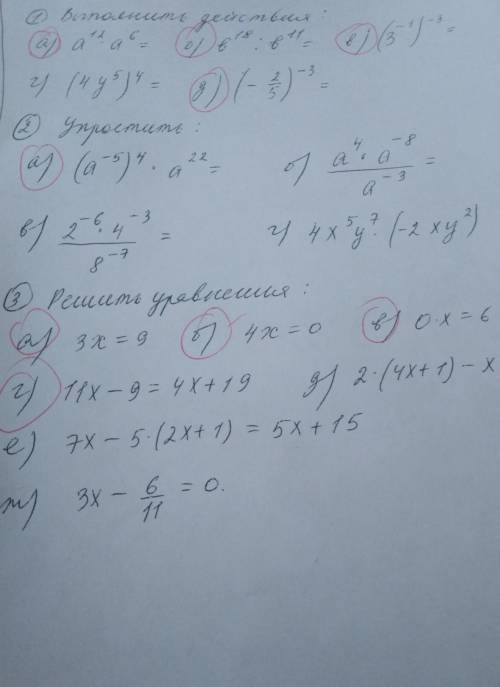 ① Выполнить действия:
а) a¹² · a⁶ = б) b¹⁸ : b¹¹ = в) (3⁻¹)⁻³ =
г) (4y⁵)⁴ = д) (- 2/5)⁻³ =
② Упростить:
а) (a⁻⁵)⁴ · a²² = б) (a⁴ · a⁻⁸)/a⁻³ =
в) (2⁻⁶ · 4⁻³)/8⁻⁷ = г) 4x⁵y⁷ · (-2xy²)
③ Решить уравнения:
а) 3x = 9 б) 4x = 0 в) 0·x = 6
г) 11x - 9 = 4x + 19 д) 2·(4x+1) - x
е) 7x - 5·(2x+1) = 5x + 15
ж) 3x - 6/11 = 0.